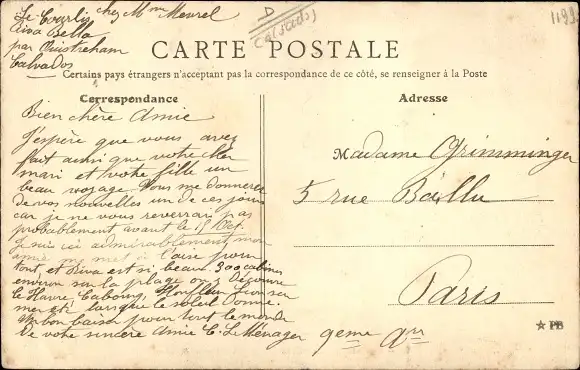 Le Courlis chez Mme Meurel
Riva Bella
par Ouistreham
Calvados
D
(Calvados)
CARTE POSTALE
Certains pays étrangers n'acceptant pas la correspondance de ce côté, se renseigner à la Poste
Correspondance
Bien chère Amie
J'espère que vous avez
fait ainsi que votre cher
mari et votre fille un
beau voyage. Vous me donnerez
de vos nouvelles un de ces jours
car je ne vous reverrai pas
probablement avant le 1er Oct.
Je suis ici admirablement mon
amie me met à l'aise pour
tout, et Riva est si beau 300 cabines
environ sur la plage on découvre
le Havre Cabourg, Honfleur
mer etc lorsque le soleil donne.
Un bon baiser pour tout le monde
De votre sincère Amie C. Le Ménager
Adresse
Madame Grimminger
5 rue Ballu
Paris
9eme Arr
PB